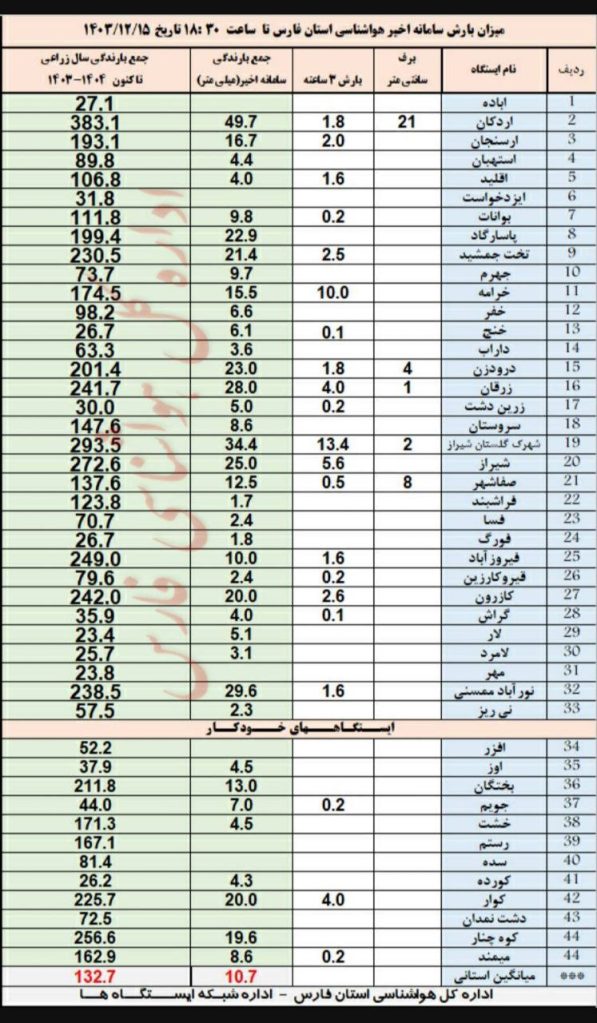 میزان بارش سامانه اخیر هواشناسی استان فارس تا ساعت ۱۸:۳۰ تاریخ ۱۴۰۳/۱۲/۱۵
ردیف نام ایستگاه برف سانتی متر بارش ۳ ساعته جمع بارندگی سامانه اخیر(میلی متر) جمع بارندگی سال زراعی تاکنون ۱۴۰۴-۱۴۰۳
۱ اباده 27.1
۲ اردکان 21 1.8 49.7 383.1
۳ ارسنجان 2.0 16.7 193.1
۴ استهبان 4.4 89.8
۵ اقلید 1.6 4.0 106.8
۶ ایزدخواست 31.8
۷ بوانات 0.2 9.8 111.8
۸ پاسارگاد 22.9 199.4
۹ تخت جمشید 2.5 21.4 230.5
۱۰ جهرم 9.7 73.7
۱۱ خرامه 10.0 15.5 174.5
۱۲ خفر 6.6 98.2
۱۳ خنج 0.1 6.1 26.7
۱۴ داراب 3.6 63.3
۱۵ درودزن 4 1.8 23.0 201.4
۱۶ زرقان 1 4.0 28.0 241.7
۱۷ زرین دشت 0.2 5.0 30.0
۱۸ سروستان 8.6 147.6
۱۹ شهرک گلستان شیراز 2 13.4 34.4 293.5
۲۰ شیراز 5.6 25.0 272.6
۲۱ صفاشهر 8 0.5 12.5 137.6
۲۲ فراشبند 1.7 123.8
۲۳ فسا 2.4 70.7
۲۴ فورگ 1.8 26.7
۲۵ فیروز آباد 1.6 10.0 249.0
۲۶ قیروکارزین 0.2 2.4 79.6
۲۷ کازرون 2.6 20.0 242.0
۲۸ گراش 0.1 4.0 35.9
۲۹ لار 5.1 23.4
۳۰ لامرد 3.1 25.7
۳۱ مهر 23.8
۳۲ نورآباد ممسنی 1.6 29.6 238.5
۳۳ نی ریز 2.3 57.5
ایستگاههای خودکار
۳۴ افزر 52.2
۳۵ اوز 4.5 37.9
۳۶ بختگان 13.0 211.8
۳۷ جویم 0.2 7.0 44.0
۳۸ خشت 4.5 171.3
۳۹ رستم 167.1
۴۰ سده 81.4
۴۱ کورده 4.3 26.2
۴۲ کوار 4.0 20.0 225.7
۴۳ دشت نمدان 72.5
۴۴ کوه چنار 19.6 256.6
۴۴ میمند 0.2 8.6 162.9
*** میانگین استانی 10.7 132.7
اداره کل هواشناسی استان فارس - اداره شبکه ایستگاه ها
اداره کل هواشناسی فارس